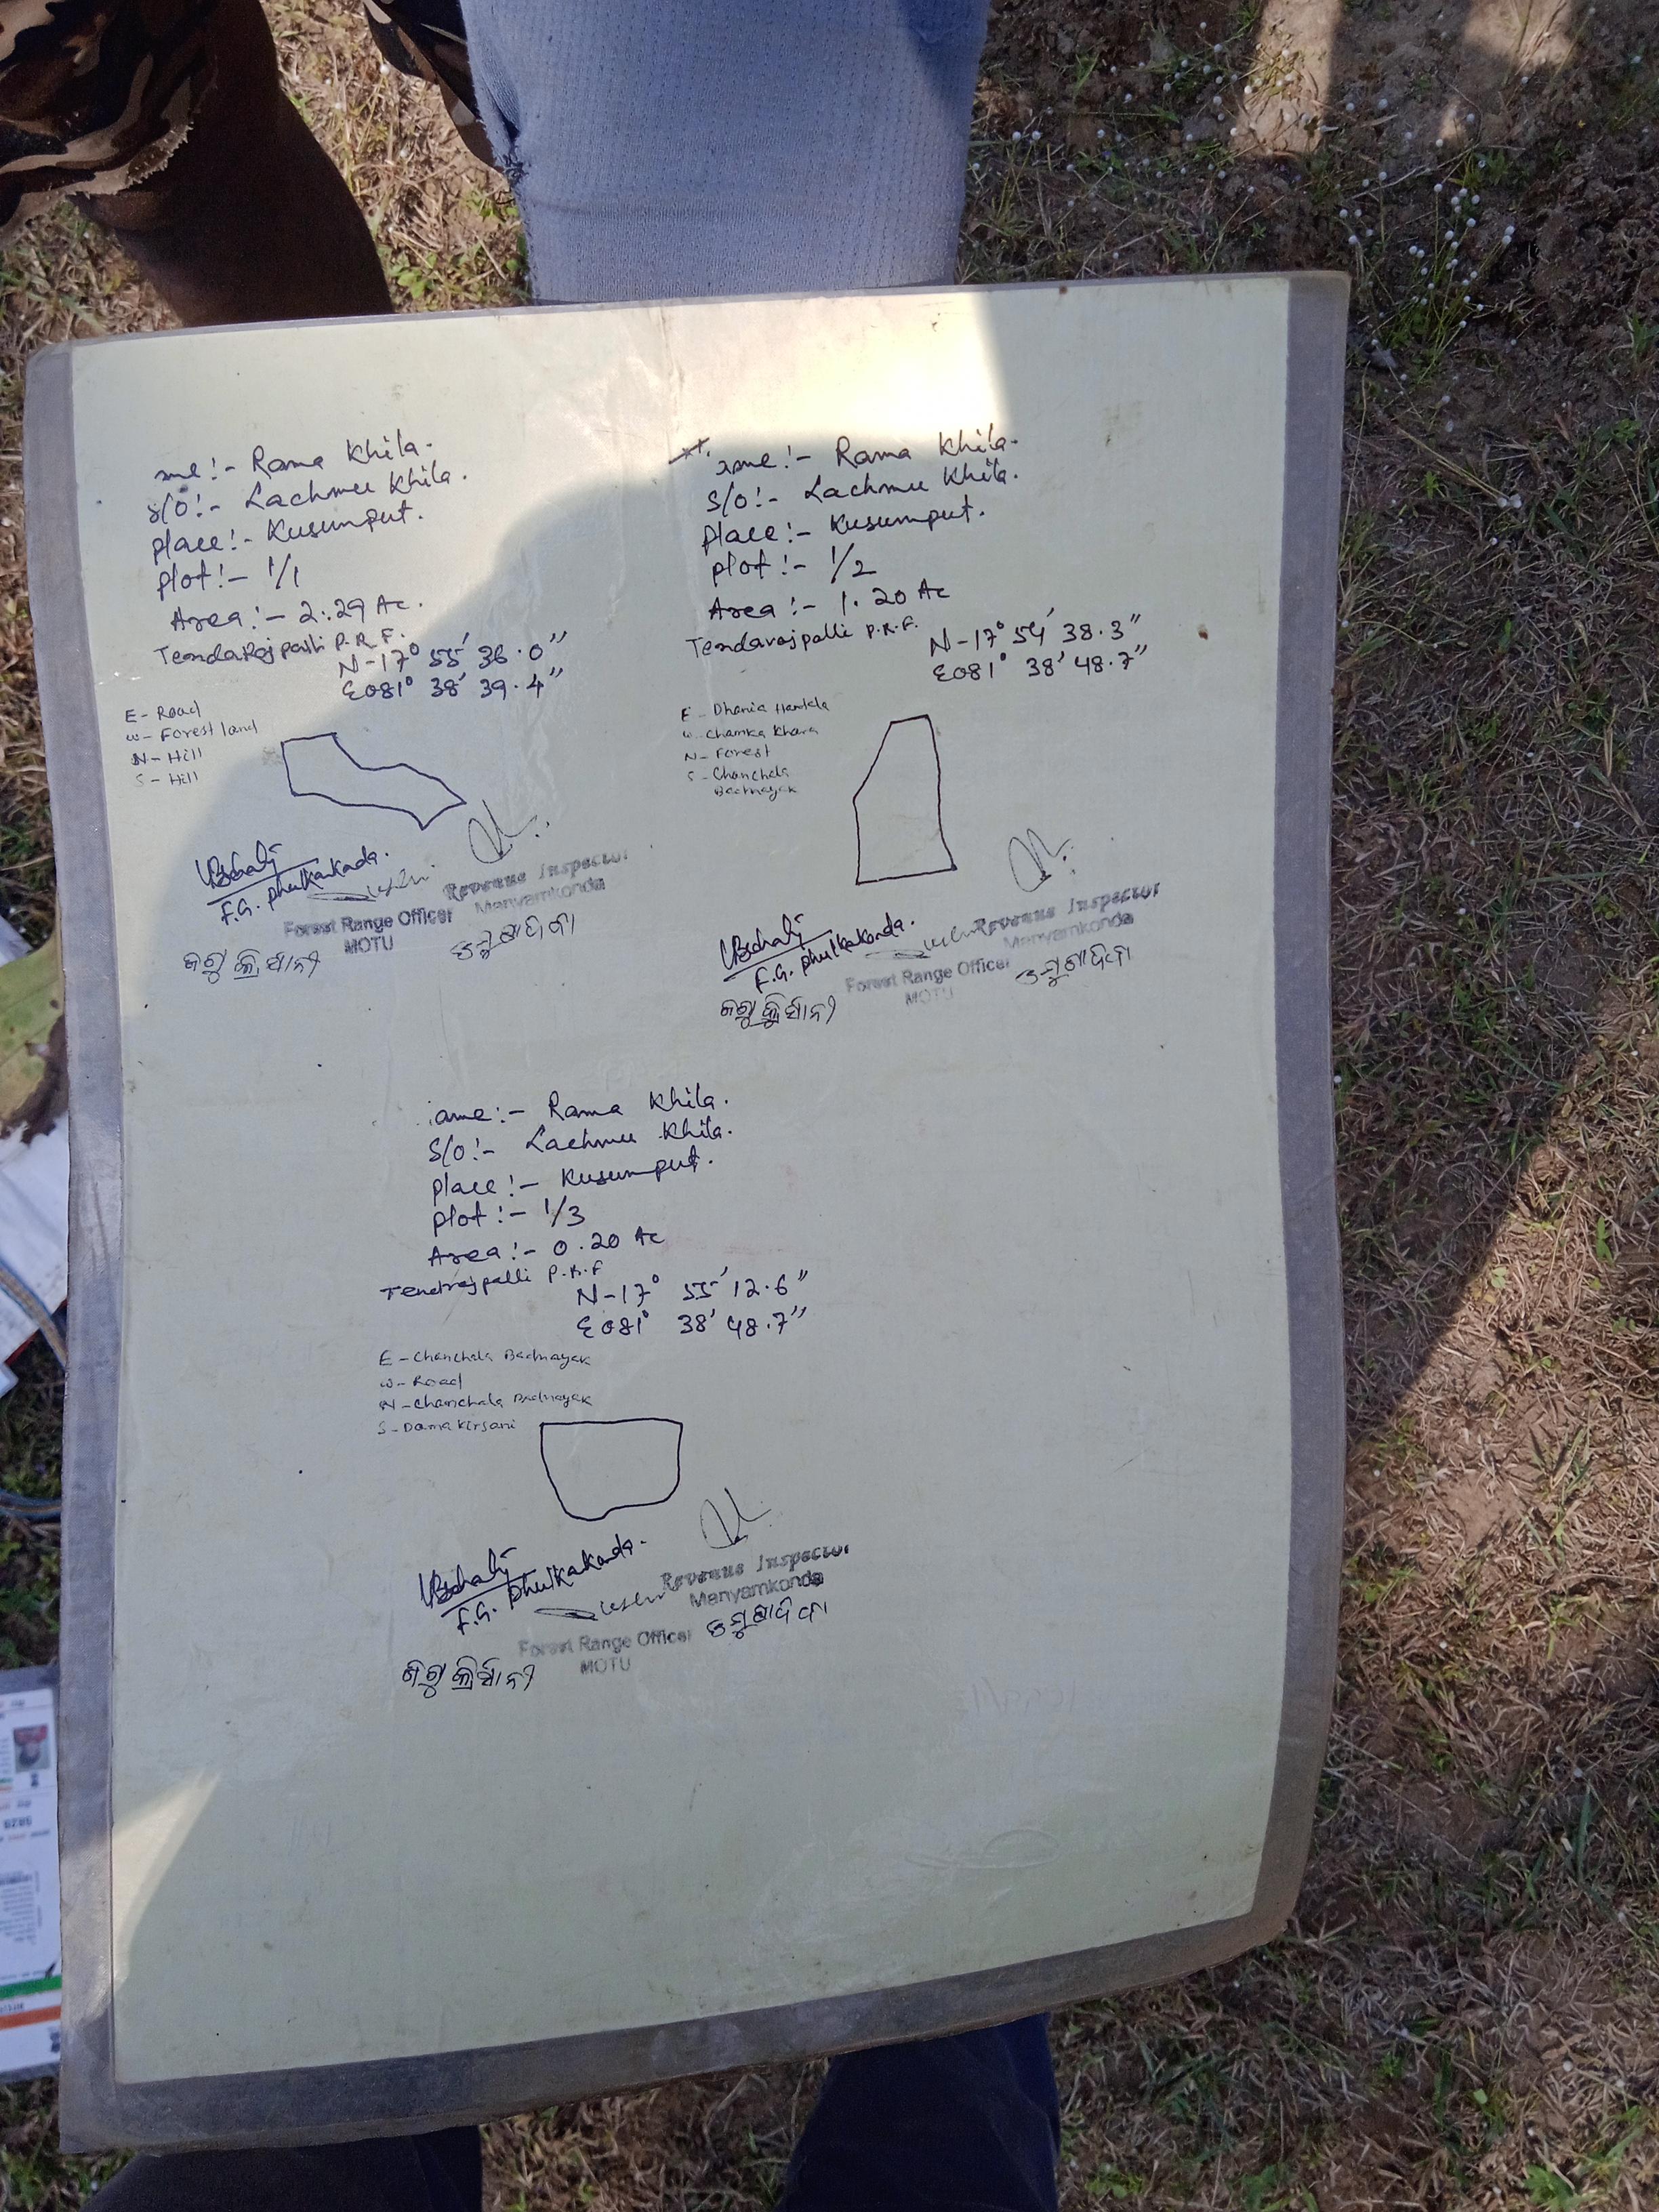 me:- Rama Khila.
S/o:- Lachmu Khila.
Place:- Kusumput.
Plot:- 1/1
Area:- 2.29 Ac.
Tendarajpalli P.R.F.
N-17° 55' 36.0"
E081° 38' 39.4"
E - Road
W - Forest land
N - Hill
S - Hill
F.G. Phulkakonda.
Revenue Inspector
Manyamkonda
Forest Range Officer
MOTU
ame:- Rama Khila.
S/o:- Lachmu Khila.
Place:- Kusumput.
Plot:- 1/2
Area:- 1.20 Ac
Tendarajpalli P.R.F.
N-17° 54' 38.3"
E081° 38' 48.7"
E - Dhania Hantala
W - Chamka Khara
N - Forest
S - Chanchala
Badnayak
F.G. Phulkakonda.
Revenue Inspector
Manyamkonda
Forest Range Officer
MOTU
ame:- Rama Khila.
S/o:- Lachmu Khila.
Place:- Kusumput.
Plot:- 1/3
Area:- 0.20 Ac
Tendrajpalli P.R.F
N-17° 55' 12.6"
E081° 38' 48.7"
E - Chanchala Badnayak
W - Road
N - Chanchala Badnayak
S - Dama Kirsani
F.G. Phulkakonda.
Revenue Inspector
Manyamkonda
Forest Range Officer
MOTU